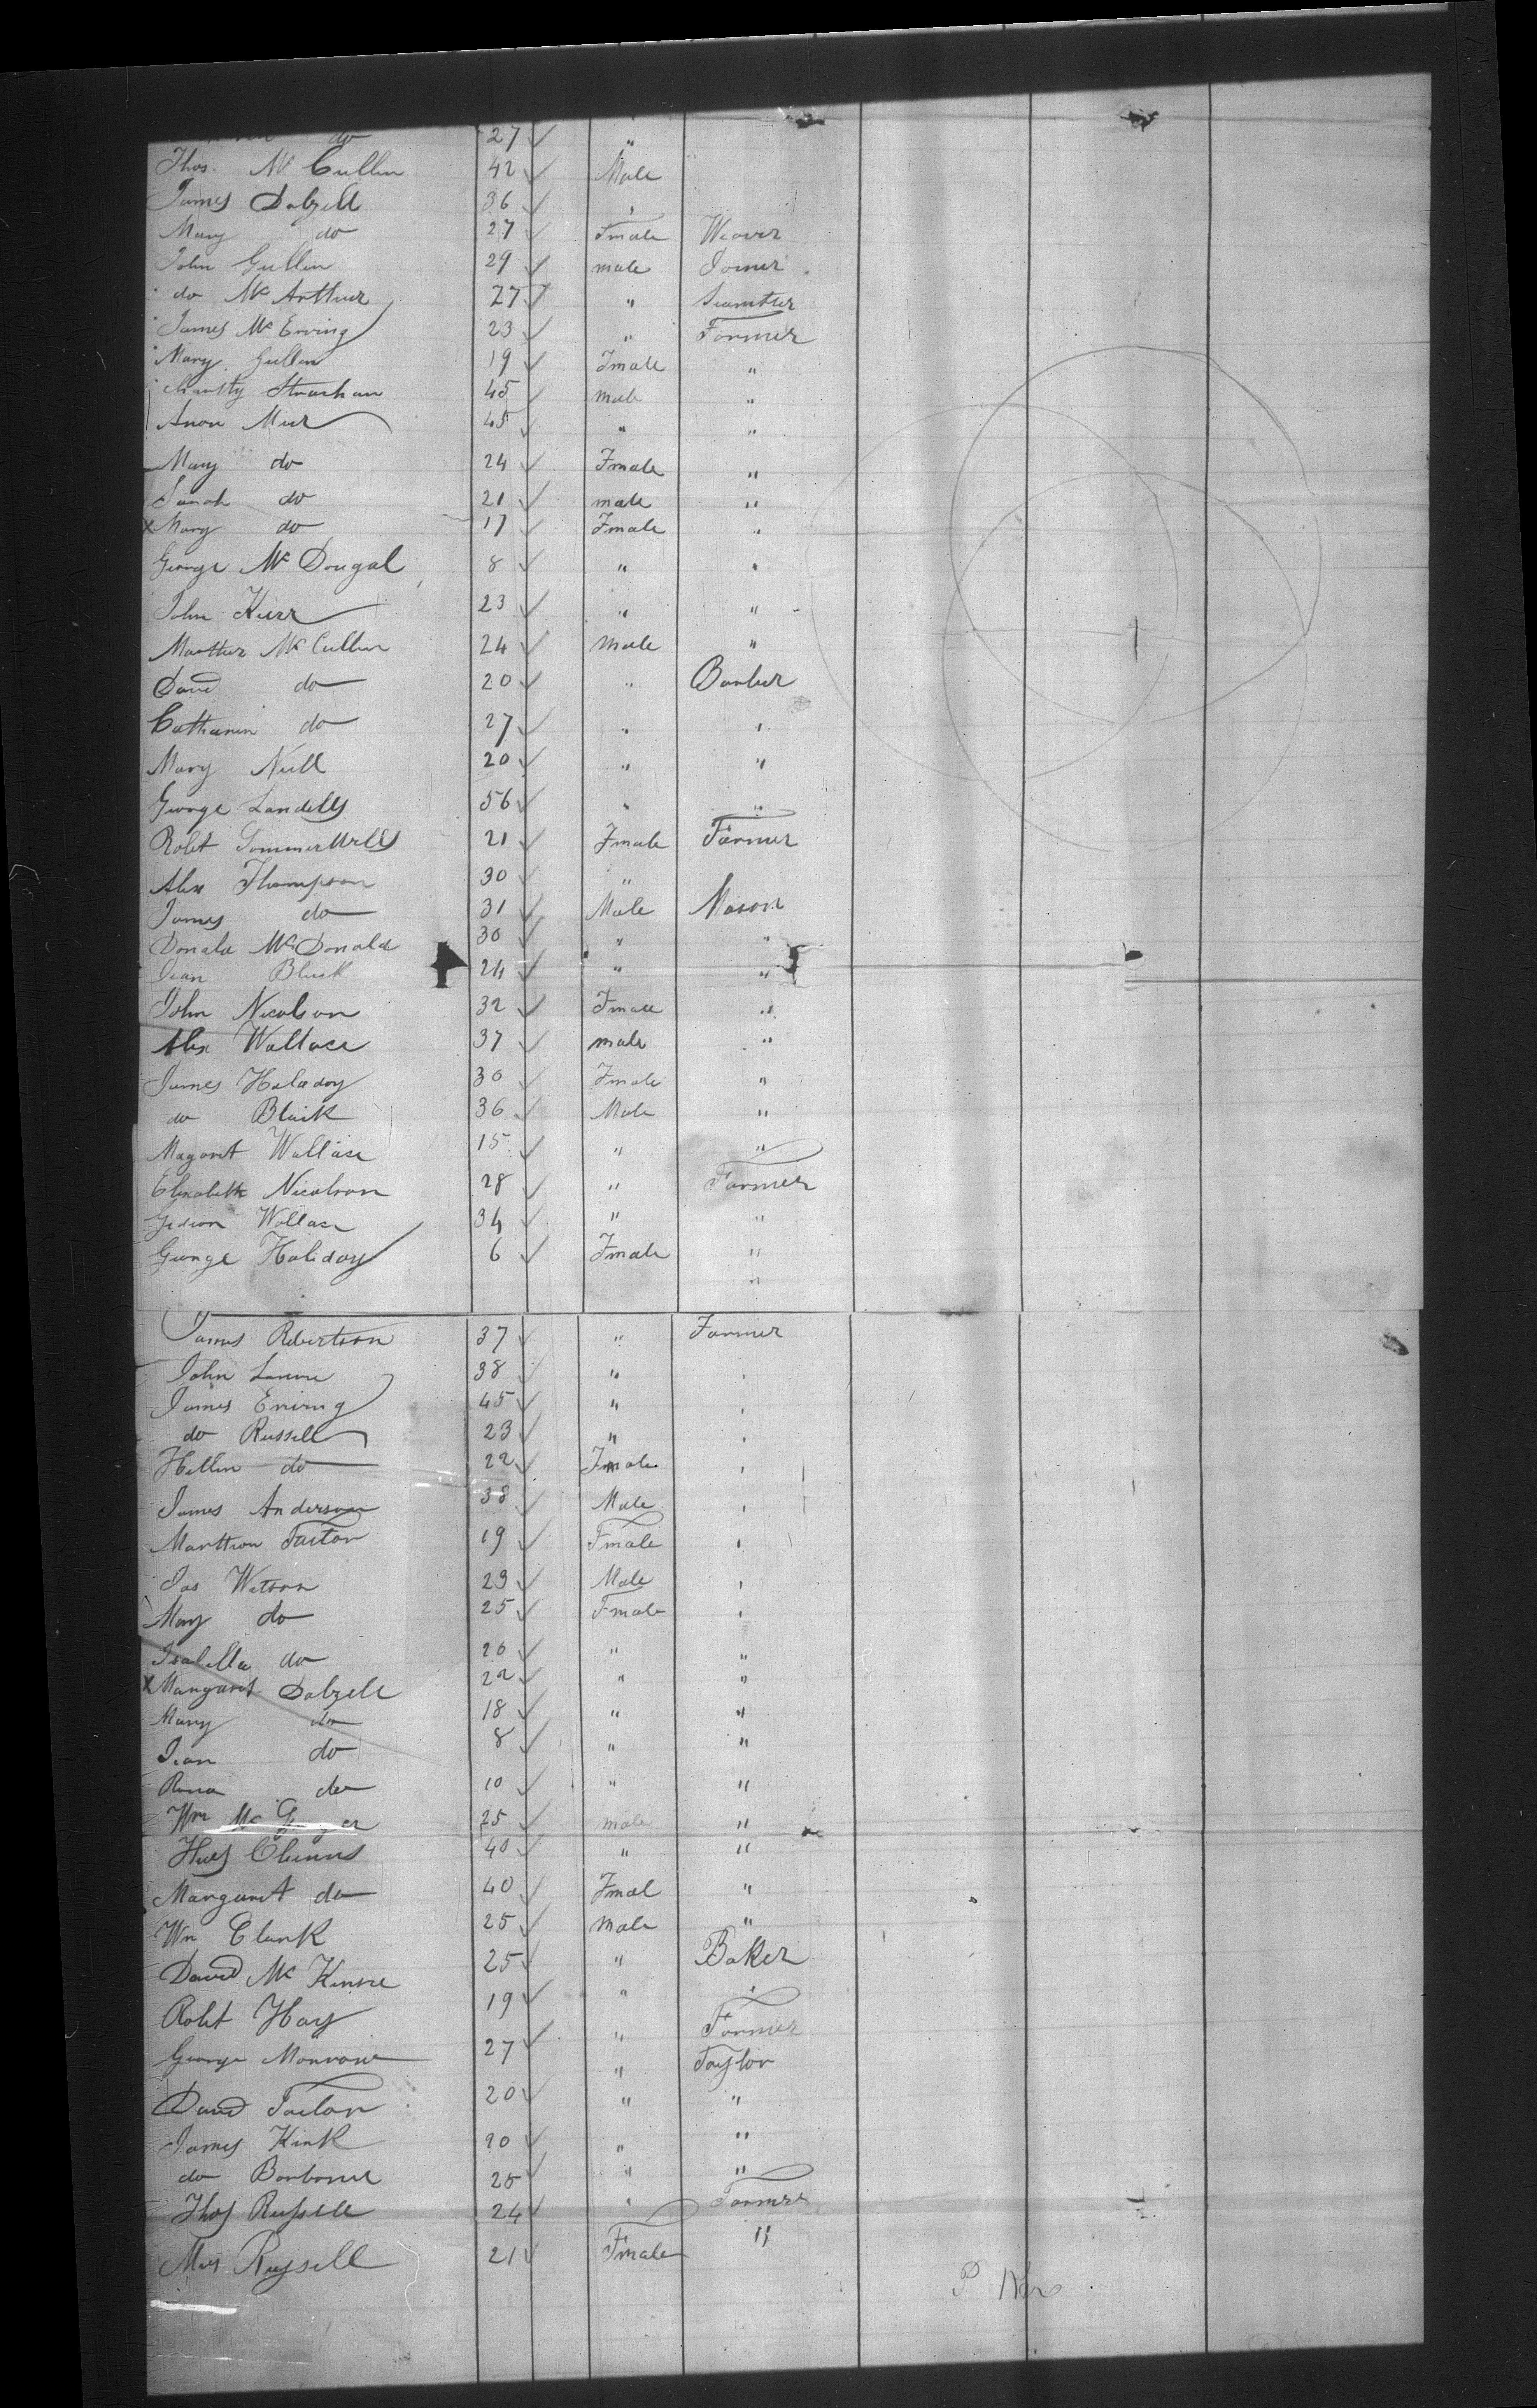 do 27 "
Thos. Mc Cullin 42 Male
James Dalzell 36 "
Mary do 27 Fmale Weaver
John Gullin 29 male Joiner
do Mc Arthur 27 "
James Mc Erving 23 " Farmer
Mary Gullin 19 Fmale "
Strachan 45 male "
Anon Mur 45 " "
Mary do 24 Fmale "
Sarah do 21 male "
x Mary do 17 Fmale "
George Mc Dougal 8 " "
John Kirr 23 " "
Marthur Mc Cullin 24 Male "
David do 20 " Barber
Catharin do 27 " "
Mary Neill 20 " "
George Landells 56 " "
Robt Sommerwells 21 Fmale Farmer
Alex Thompson 30 "
James do 31 Male Mason
Donald McDonald 30 " "
Jean Blaik 24 " "
John Nicolson 32 Fmale "
Alex Wallace 37 male "
James Haladay 30 Fmale "
do Blaik 36 Male "
Magaret Wallase 15 " "
Elisabeth Nicolson 28 " Farmer
Gedion Wallace 34 " "
George Haliday 6 Fmale "
"
James Robertson 37 " Farmer
John 38 " "
James Erving 45 " "
do Russell 23 " "
Hellin do 22 Fmale "
James Anderson 38 Male "
Marttion Tailor 19 Fmale "
Jas Watson 23 Male "
Mary do 25 Fmale "
Isabella do 20 " "
x Margaret Dalzell 22 " "
Mary do 18 " "
Jean do 8 " "
Rena do 10 " "
Wm Mc 25 male "
40 " "
Margaret do 40 Fmal "
Wm Clark 25 Male "
David Mc Kinsie 25 " Baker
Robt Hay 19 " "
George Monrowe 27 " Farmer
" Taylor
David Tailor 20 " "
James Kirk 20 " "
do Barbour 25 " "
Thos Russell 24 " Farmer
Mrs Russell 21 Fmale "